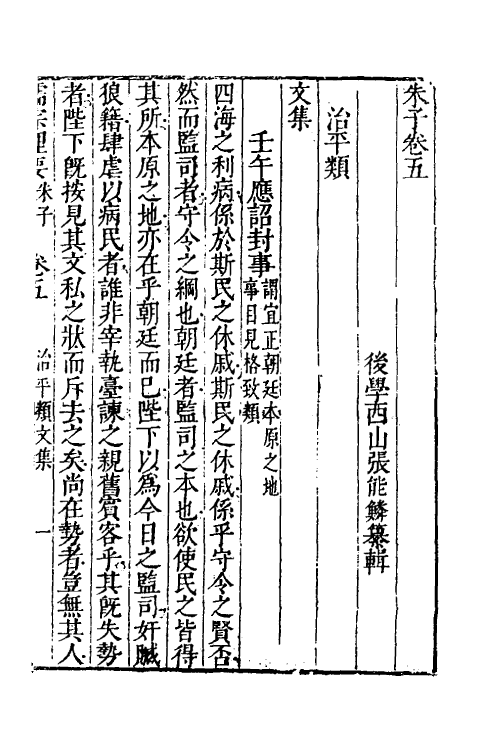 朱子卷五
後學西山張能鱗纂輯
治平類
文集
壬午應詔封事
謂宜正朝廷本原之地
事目見格致類
四海之利病係於斯民之休戚斯民之休戚係乎守令之賢否
然而監司者守令之綱也朝廷者監司之本也欲使民之皆得
其所本原之地亦在乎朝廷而已陛下以為今日之監司奸贓
狼籍肆虐以病民者誰非宰執臺諫之親舊賓客乎其既失勢
者陛下既按見其交私之狀而斥去之矣尚在勢者豈無其人
儒宗理要 朱子 卷五 治平類文集 一